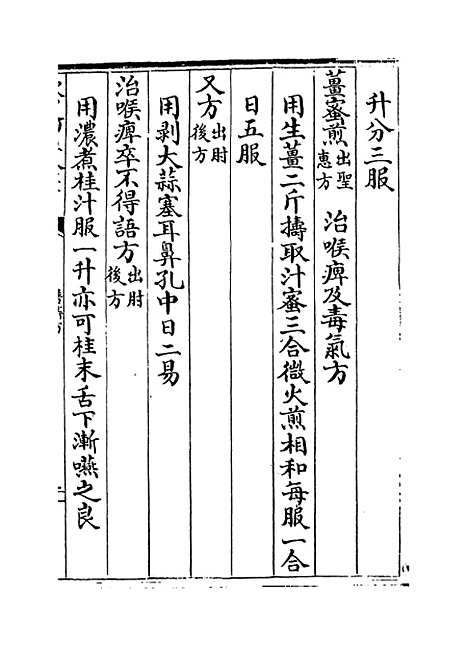 升分三服
薑蜜煎出聖惠方 治喉痺及毒氣方
用生薑二斤擣取汁蜜三合微火煎相和每服一合
日五服
又方出肘後方
用剥大蒜塞耳鼻孔中日二易
治喉痺卒不得語方出肘後方
用濃煮桂汁服一升亦可桂末舌下漸嚥之良